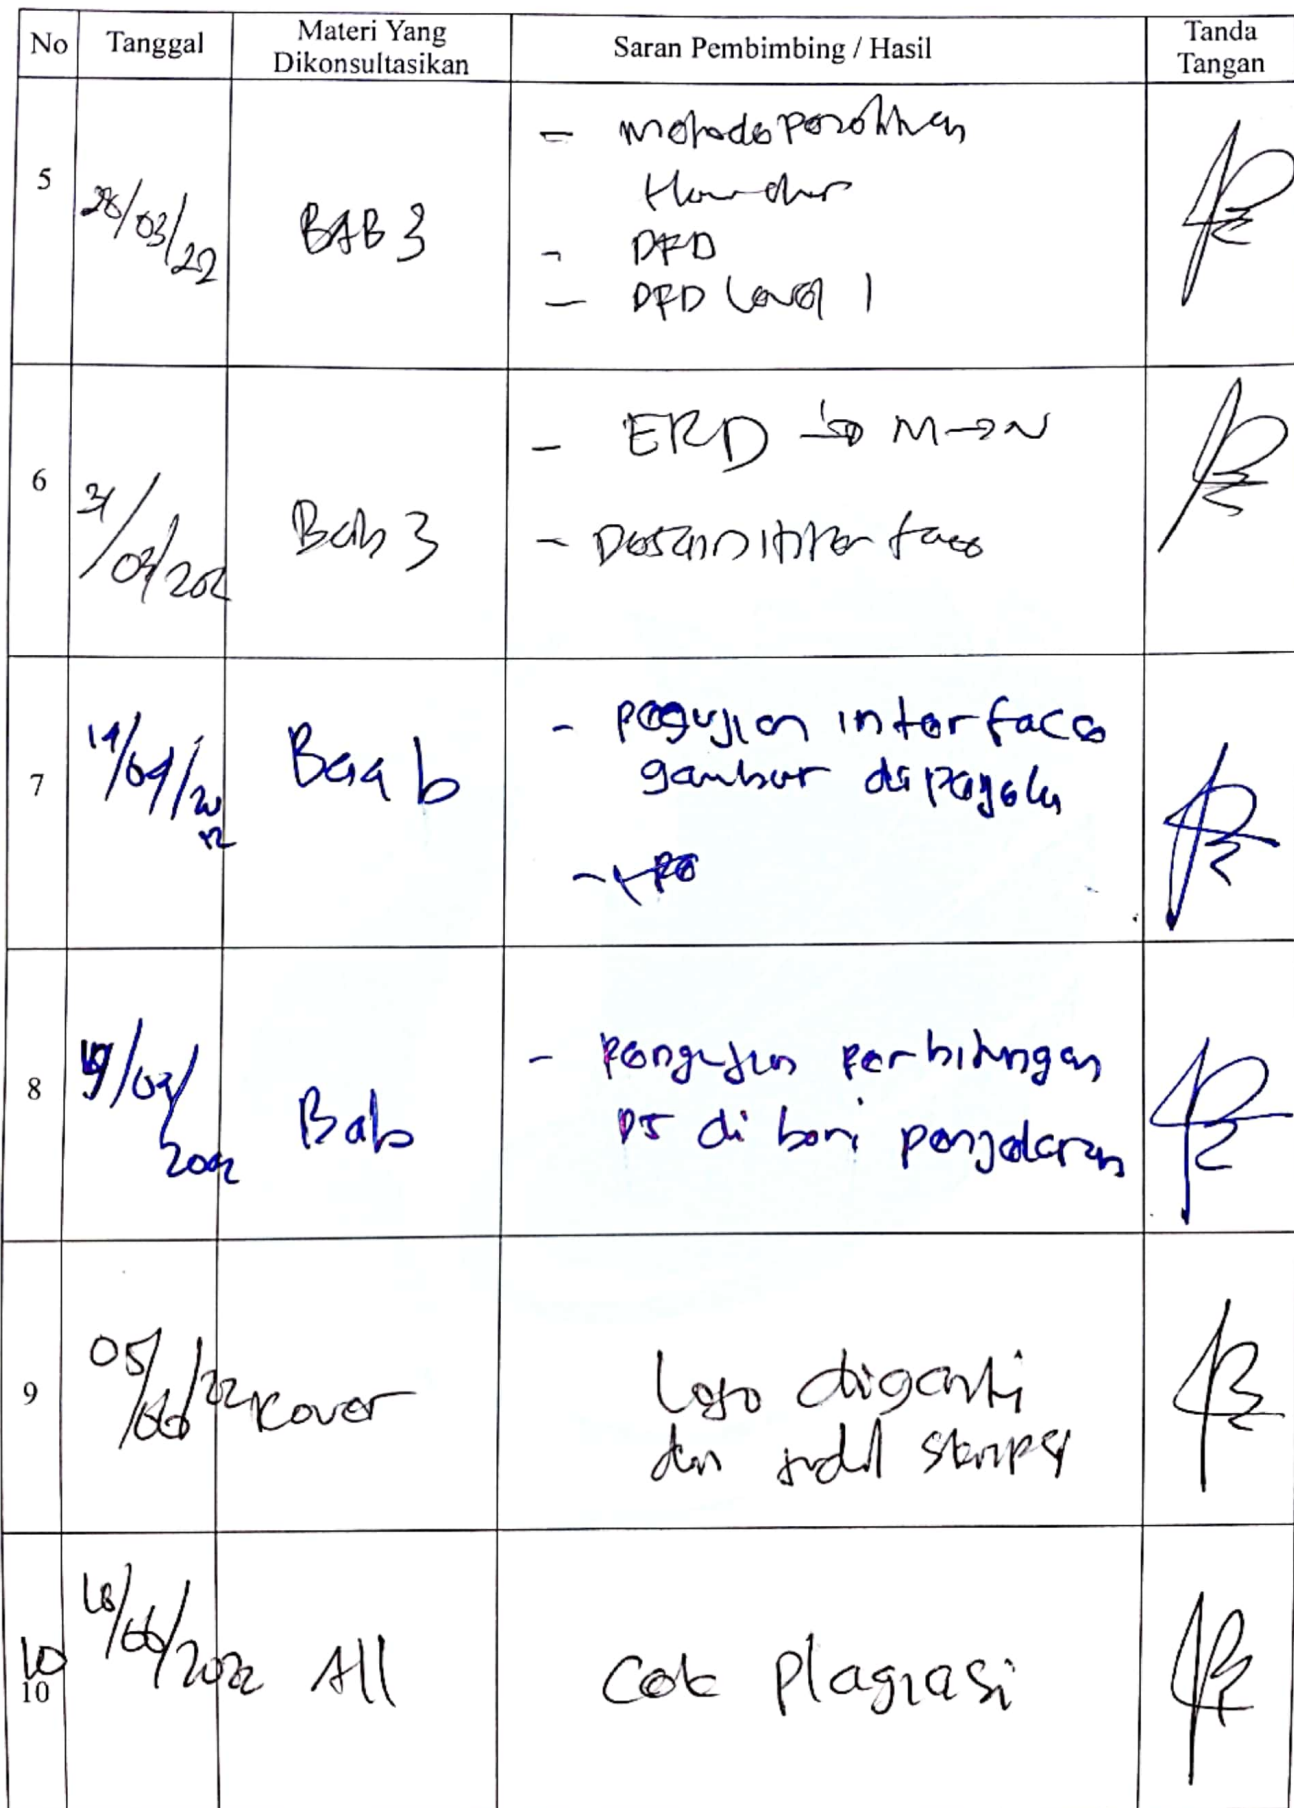 No Tanggal Materi Yang Dikonsultasikan Saran Pembimbing / Hasil Tanda Tangan
5 28/03/22 BAB 3
- metode
- DFD
- DFD Level 1
6 31/03/202 Bab 3
- ERD → M→N
- Desain interface
7
- pegujian interface
gambar
8 Bab
- pengujian perhitungan
di beri penjelasan
9 05/06/22 Kover
Logo diganti
dan judul skripsi
10 10 /06/2022 All
Cek Plagiasi